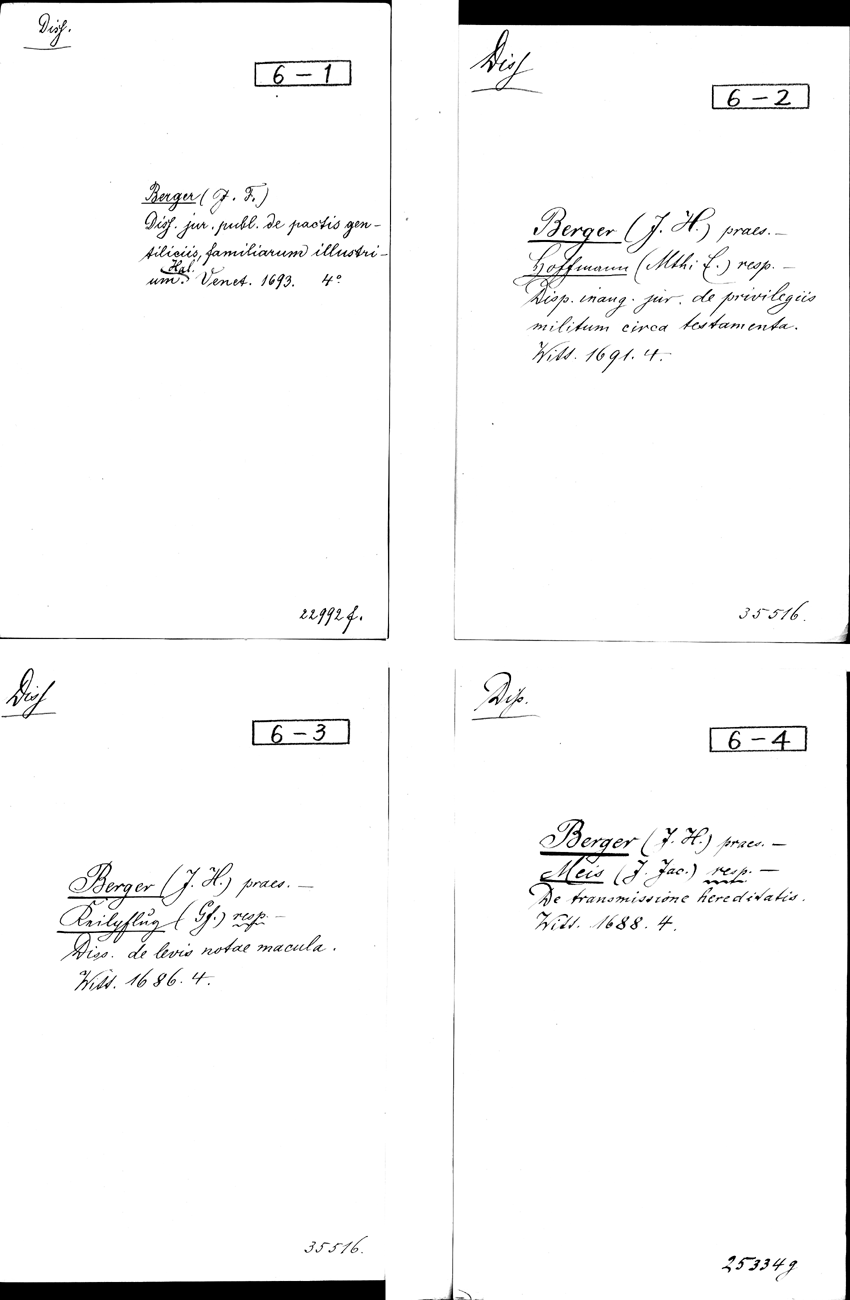 Diss.
6 – 1
Berger (J. F.)
Diss. jur. publ. de pactis gen-
tiliciis, familiarum illustri-
Hal.
um. Venet. 1693. 4°
22992 f.
Diss
6 – 2
Berger (J. H.) praes. —
Hoffmann (Mthi E.) resp. —
Disp. inaug. jur. de privilegiis
militum circa testamenta.
Witt. 1691. 4.
35516.
Diss
6 – 3
Berger (J. H.) praes. —
(Gf.) resp. —
Diss. de levis notae macula.
Witt. 1686. 4.
35516.
Diss.
6 – 4
Berger (J. H.) praes. —
Meis (J. Jac.) resp. —
De transmissione hereditatis.
Witt. 1688. 4.
25334g